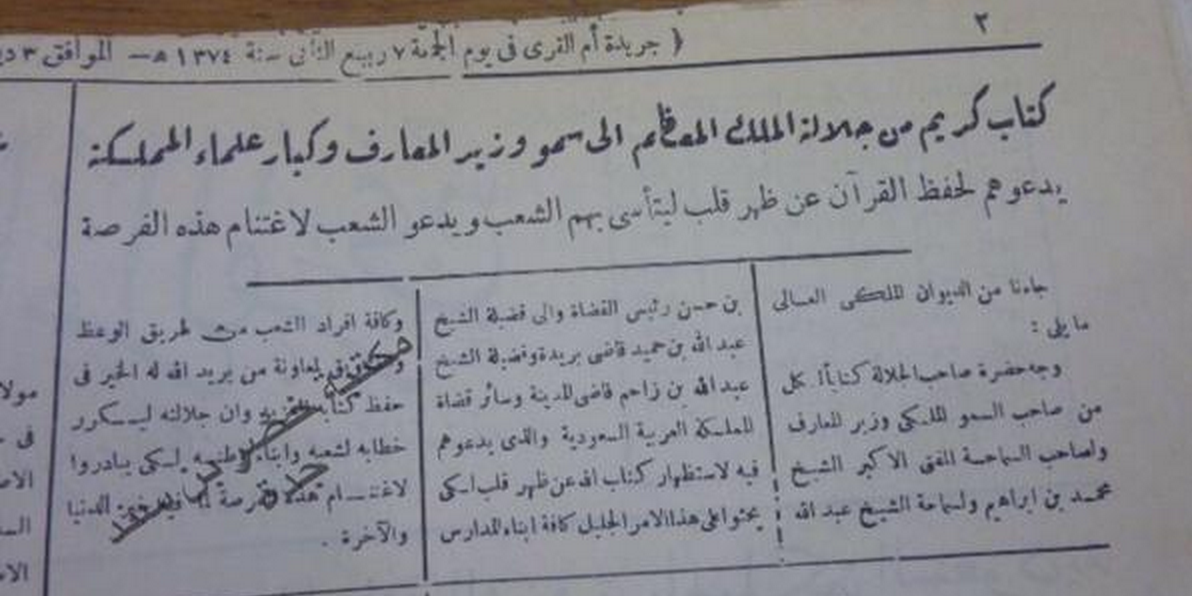 ٢
( جريدة أم القرى فى يوم الجمعة ٧ ربيع الثانى سنة ١٣٧٤ هـ — الموافق ٣
كتاب كريم من جلالة الملك المعظم الى سمو وزير المعارف وكبار علماء المملكة
يدعوهم لحفظ القرآن عن ظهر قلب ليتأسى بهم الشعب ويدعو الشعب لاغتنام هذه الفرصة
جاءنا من الديوان الملكى العالى
ما يلى :
وجه حضرة صاحب الجلالة كتاباً لكل
من صاحب السمو الملكى وزير المعارف
ولصاحب السماحة المفتى الاكبر الشيخ
محمد بن ابراهيم ولسماحة الشيخ عبد الله
بن حسن رئيس القضاة والى فضيلة الشيخ
عبد الله بن حميد قاضى بريدة وفضيلة الشيخ
عبد الله بن زاحم قاضى المدينة وسائر قضاة
المملكة العربية السعودية والذى يدعوهم
فيه لاستظهار كتاب الله عن ظهر قلب لكى
يحثوا على هذا الامر الجليل كافة ابناء المدارس
وكافة افراد الشعب من طريق الوعظ
لمعاونة من يريد الله له الخير فى
حفظ كتابه العزيز وان جلالته ليكرر
خطابه لشعبه وابناء وطنيه لكى يبادروا
لاغتنام هذه الفرصة لما فيه خير الدنيا
والآخرة .
مولا
فى